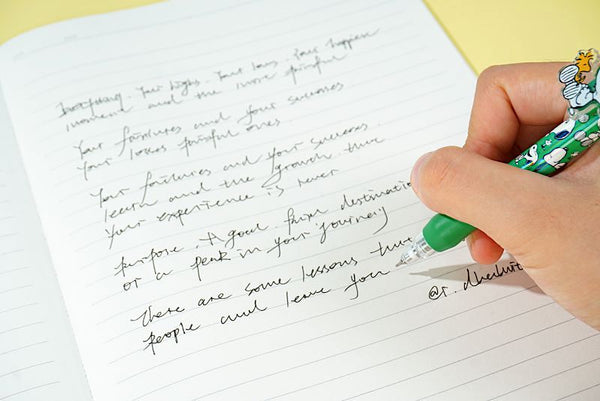 Everything. Your highs. Your lows. Your happiest
moment and the more painful
Your failures and your successes
Your losses painful ones.
Your failures and your success.
learn and the growth. that
Your experience is never
purpose. A goal. from destination
or a peak in your journey
There are some lessons that
people and leave you
@r.